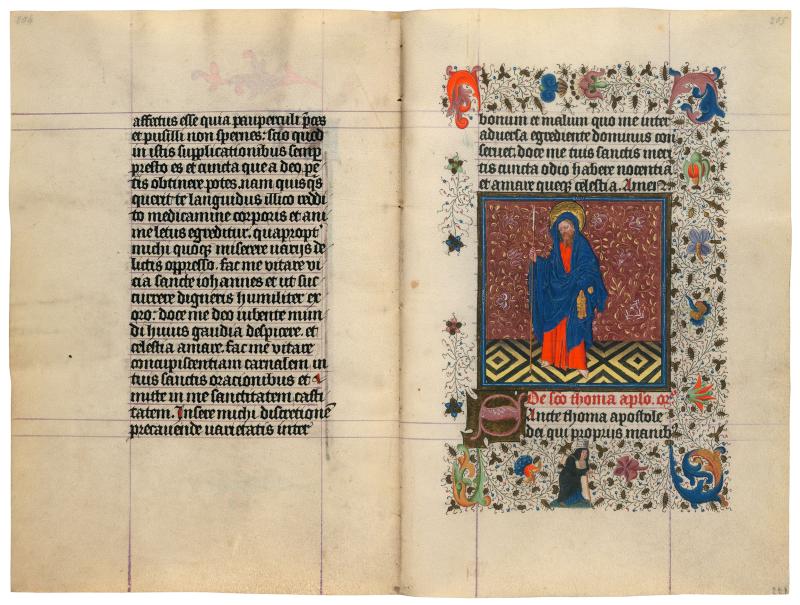 204
affectus esse quia pauperculi p̄ces
et pusilli non spernis: scio quod
in istis supplicationibus semꝑ
presto es et cuncta que a deo pe
tis obtinere potes. nam quisq̄s
querit te languidus illico reddi
to medicamine corporis et ani
me letus egreditur. quapropt̄
michi quoq̄ miserere varijs de
lictis oppresso. fac me vitare vi
cia sancte iohannes et ut suc
currere digneris humiliter ex
oro: doce me deo iubente mun
di huius gaudia despicere. et
celestia amare. fac me vitare
concupiscentiam carnalem in
tuis sanctis oracionibus et
mitte in me sanctitatem casti
tatem. Insere michi discretionē
precauende varietatis inter
205
bonum et malum quo me inter
aduersa egrediente dominus con
seruet. doce me tuis sanctis meri
tis cuncta odio habere nocentia
et amare queq̄ celestia. Amen
De sc̄o thoma apl̄o. or̄
Sancte thoma apostole
dei qui proprijs manib⁹